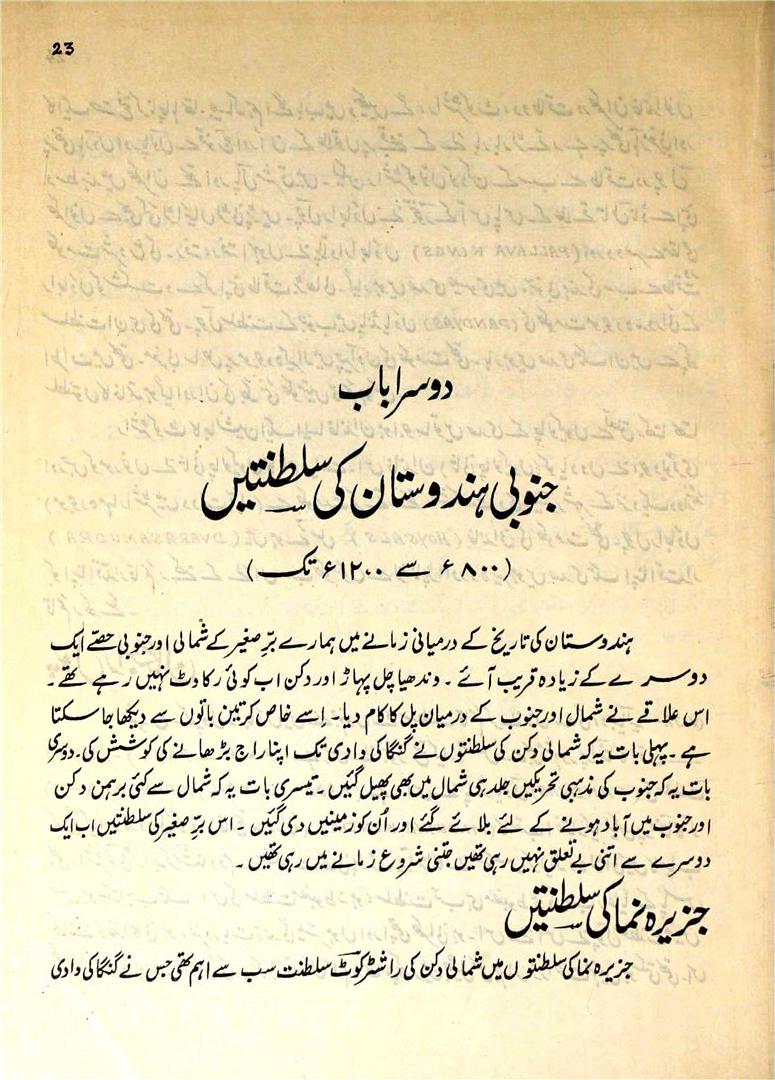 23
دوسرا باب
جنوبی ہندوستان کی سلطنتیں
(۸۰۰ء سے ۱۲۰۰ء تک)
ہندوستان کی تاریخ کے درمیانی زمانے میں ہمارے برِّ صغیر کے شمالی اور جنوبی حصّے ایک
دوسرے کے زیادہ قریب آئے ۔ وندھیاچل پہاڑ اور دکن اب کوئی رکاوٹ نہیں رہے تھے ۔
اس علاقے نے شمال اور جنوب کے درمیان پل کا کام دیا ۔ اِسے خاص کر تین باتوں سے دیکھا جا سکتا
ہے ۔ پہلی بات یہ کہ شمالی دکن کی سلطنتوں نے گنگا کی وادی تک اپنا راج بڑھانے کی کوشش کی ۔ دوسری
بات یہ کہ جنوب کی مذہبی تحریکیں جلد ہی شمال میں بھی پھیل گئیں ۔ تیسری بات یہ کہ شمال سے کئی برہمن دکن
اور جنوب میں آباد ہونے کے لئے بلائے گئے اور اُن کو زمینیں دی گئیں ۔ اس برِّ صغیر کی سلطنتیں اب ایک
دوسرے سے اتنی بے تعلق نہیں رہی تھیں جتنی شروع زمانے میں رہی تھیں ۔
جزیرہ نما کی سلطنتیں
جزیرہ نما کی سلطنتوں میں شمالی دکن کی راشٹرکوٹ سلطنت سب سے اہم تھی جس نے گنگا کی وادی